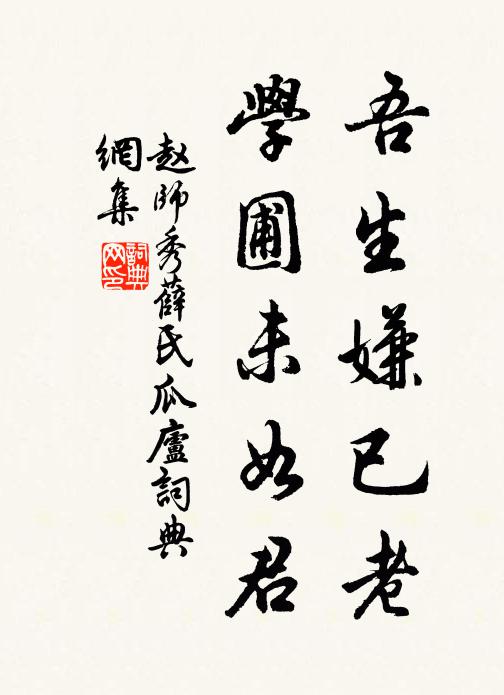 吾生嫌已老
學圃未如君
赵師秀薛氏瓜廬詞典
網集
詞典
网印